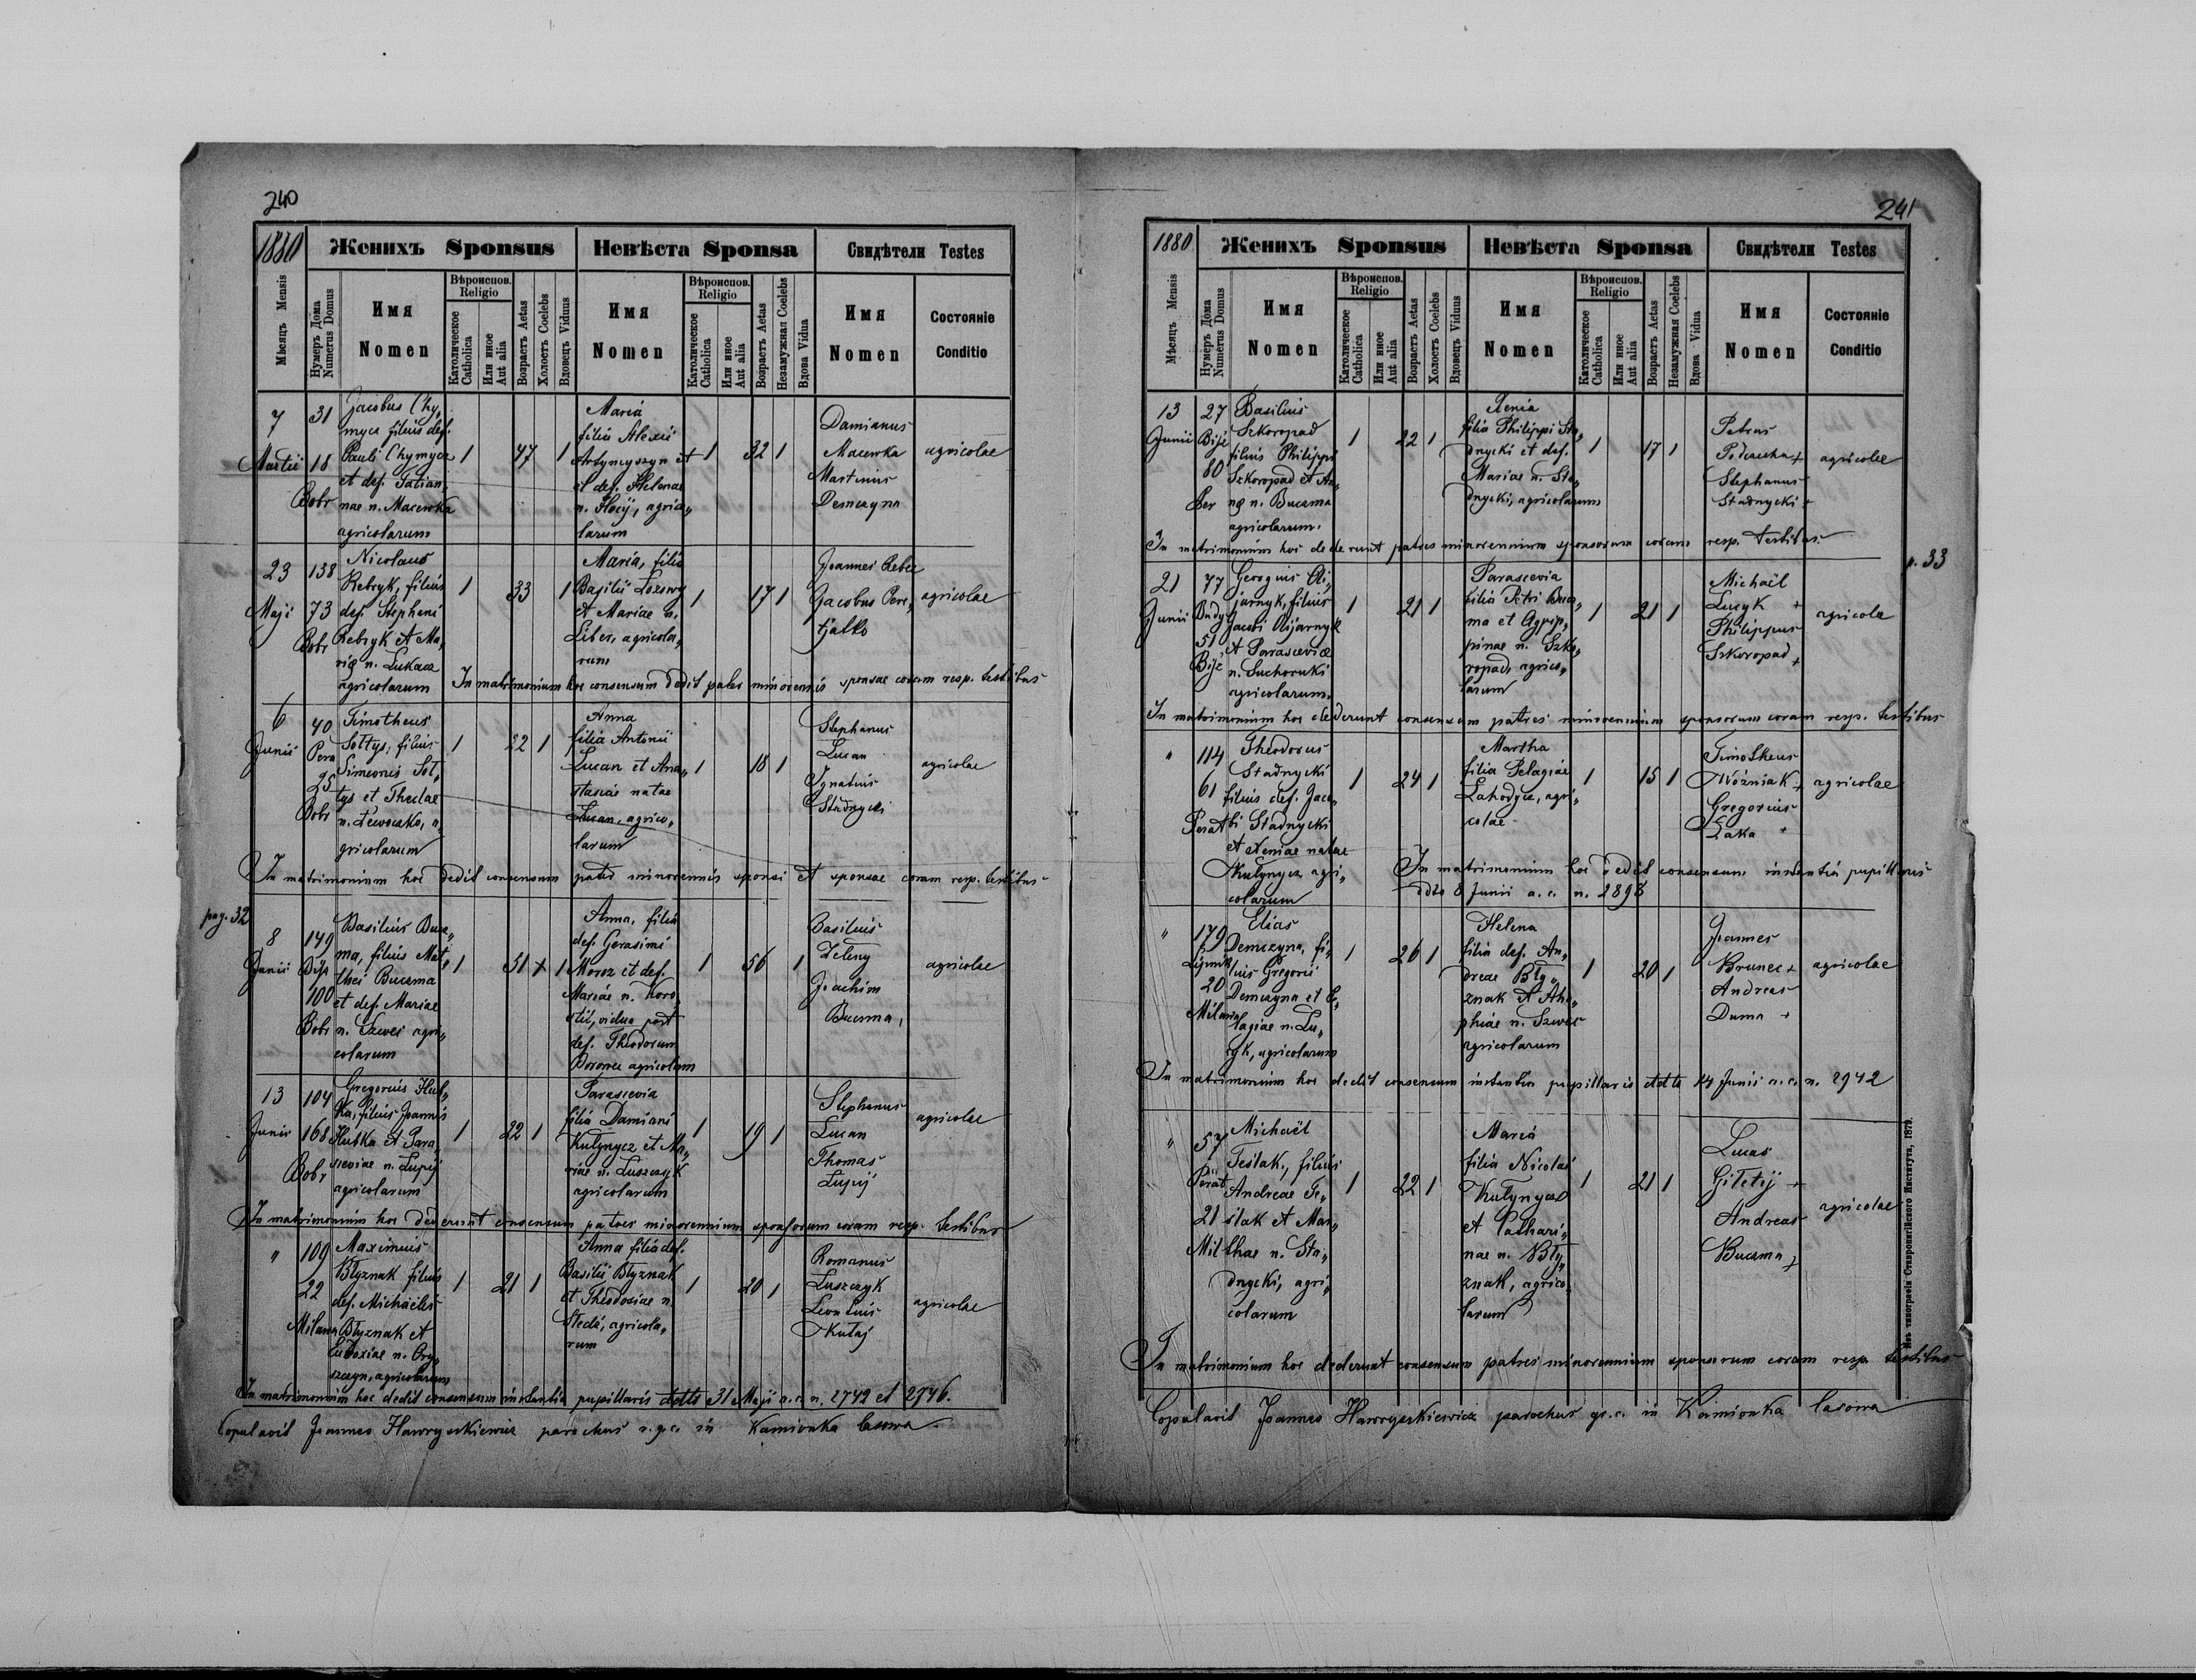 240
1880
Женихъ Sponsus
Невѣста Sponsa
Свидѣтели Testes
Мѣсяцъ Mensis
Нумеръ Дома
Numerus Domus
Имя
Nomen
Вѣроиспов.
Religio
Католическое
Catholica
Или иное
Aut alia
Возрастъ Aetas
Холостъ Coelebs
Вдовецъ Viduus
Имя
Nomen
Вѣроиспов.
Religio
Католическое
Catholica
Или иное
Aut alia
Возрастъ Aetas
Незамужная Coelebs
Вдова Vidua
Имя
Nomen
Состояніе
Conditio
7
Martii
31
18
Bobr
Jacobus Chy„
mycz filius def.
Pauli Chymycz
et def. Tatian„
nae n. Macewka
agricolarum
1 47 1
Maria
filia Alexii
Artymyszyn et
et def. Helenae
agrico„
larum
1 32 1
Damianus
Macewka
Martinus
Demczyna
agricolae
23
Maji
138
73
Bobr
Nicolaus
Rebryk, filius
def. Stephani
Rebryk et Ma„
riae n. Lukacz
agricolarum
1 33 1
Maria, filia
Basilii Lozowy
et Mariae n.
Liber, agricola„
rum
1 17 1
Joannes
Jacobus Pere„
tjatko
agricolae
In matrimonium hoc consensum dedit pater minorennis sponsae coram resp. testibus
6
Junii
40
Pera
25
Bobr
Timotheus
Sottys, filius
Simeonis Sot„
tys et Theclae
n. Lewoczko, a„
gricolarum
1 22 1
Anna
filia Antonii
Lucan et Ana„
stasiae natae
Lucan, agrico„
larum
1 18 1
Stephanus
Lucan
Ignatius
Stadnycki
agricolae
In matrimonium hoc dedit consensum pater minorennis sponsi et sponsae coram resp. testibus
pag. 32
8
Junii
149
Bije
100
Bobr
Basilius Bucz„
ma, filius Mat„
thei Buczma
et def. Mariae
n. Szwec agri„
colarum
1 51 x 1
Anna, filia
def. Gerasimi
Moroz et def.
Mariae n. Koro„
stil, vidua post
def. Theodorum
agricolam
1 56 1
Basilius
Zeleny
Joachim
Buczma,
agricolae
13
Junii
104
168
Bobr
Gregorius Hub„
ka, filius Joannis
Hubka et Para„
sceviae n. Lupij
agricolarum
1 22 1
Parascevia
filia Damiani
Kutynycz et Ma„
riae n. Luszczyk
agricolarum
1 19 1
Stephanus
Lucan
Thomas
Lupij
agricolae
In matrimonium hoc dederunt consensum patres minorennium sponsorum coram resp. testibus
"
109
22
Milana
Maximus
Btyznak filius
def. Michaëlis
Btyznak et
Eudoxiae n. Ory„
szczyn, agricolarum
1 21 1
Anna filia def.
Basilii Btyznak
et Theodosiae n.
Hedz, agricola„
rum
1 20 1
Romanus
Luszczyk
Leontius
Kutaj
agricolae
In matrimonium hoc dedit consensum instantia pupillaris ddto 31 Maji a. c. n. 2742 et 2746.
Copulavit Joannes Hawryszkiewicz parochus r. g. c. in Kamionka lasowa
241
1880.
Женихъ Sponsus
Невѣста Sponsa
Свидѣтели Testes
Мѣсяцъ Mensis
Нумеръ Дома
Numerus Domus
Имя
Nomen
Вѣроиспов.
Religio
Католическое
Catholica
Или иное
Aut alia
Возрастъ Aetas
Холостъ Coelebs
Вдовецъ Viduus
Имя
Nomen
Вѣроиспов.
Religio
Католическое
Catholica
Или иное
Aut alia
Возрастъ Aetas
Незамужная Coelebs
Вдова Vidua
Имя
Nomen
Состояніе
Conditio
13
Junii
27
Bije
80
Per
Basilius
Szkoropad
filius Philippi
Szkoropad et An„
nae n. Buczma
agricolarum.
1 22 1
Xenia
filia Philippi Sta„
dnycki et def.
Mariae n. Sta„
dnycki, agricolarum
1 17 1
Petrus
Podczecha +
Stephanus
Stadnycki +
agricolae
In matrimonium hoc dederunt patres minorennium sponsorum coram resp. testibus.
p. 33
21
Junii
77
Budy
51
Bije
Georgius Oli„
jarnyk, filius
Jacobi Olijarnyk
et Parasceviae
n. Suchoruki
agricolarum.
1 21 1
Parascevia
filia Petri Bucz„
ma et Agrip„
pinae n. Szko„
ropad, agrico„
larum
1 21 1
Michaël
Lucyk +
Philippus
Szkoropad +
agricolae
In matrimonium hoc dederunt consensum patres minorennium sponsorum coram resp. testibus
"
114
61
Perat
Theodorus
Stadnycki
filius def. Jaco„
bi Stadnycki
et Xeniae natae
Kutynycz agri„
colarum
1 24 1
Martha
filia Pelagiae
Lahodycz, agri„
colae
1 15 1
Timotheus
Woźniak +
Gregorius
Laka +
agricolae
In matrimonium hoc dedit consensum instantia pupillaris
ddto 8 Junii a. c. n. 2898
"
179
Lipnik
20
Milana
Elias
Demczyna, fi„
lius Gregorii
Demczyna et Pe„
lagiae n. Lu„
cyk, agricolarum
1 26 1
Helena
filia def. An„
dreae Bty„
znak et Aha„
phiae n. Szwec
agricolarum
1 20 1
Joannes
Brunec +
Andreas
Duma +
agricolae
In matrimonium hoc dedit consensum instantia pupillaris ddto 14 Junii a. c. n. 2942
"
57
Perat
21
Mil
Michaël
Teslak, filius
Andreae Te„
slak et Mar„
thae n. Sta„
dnycki, agri„
colarum
1 22 1
Maria
filia Nicolai
Kutynycz
et Cathari„
nae n. Bty„
znak, agrico„
larum
1 21 1
Lucas
Giletij +
Andreas
Buczma +
agricolae
In matrimonium hoc dederunt consensum patres minorennium sponsorum coram resp. testibus
Copulavit Joannes Hawryszkiewicz parochus gr. c. in Kamionka lasowa
Изъ типографіи Ставропигійского Института, 1879.